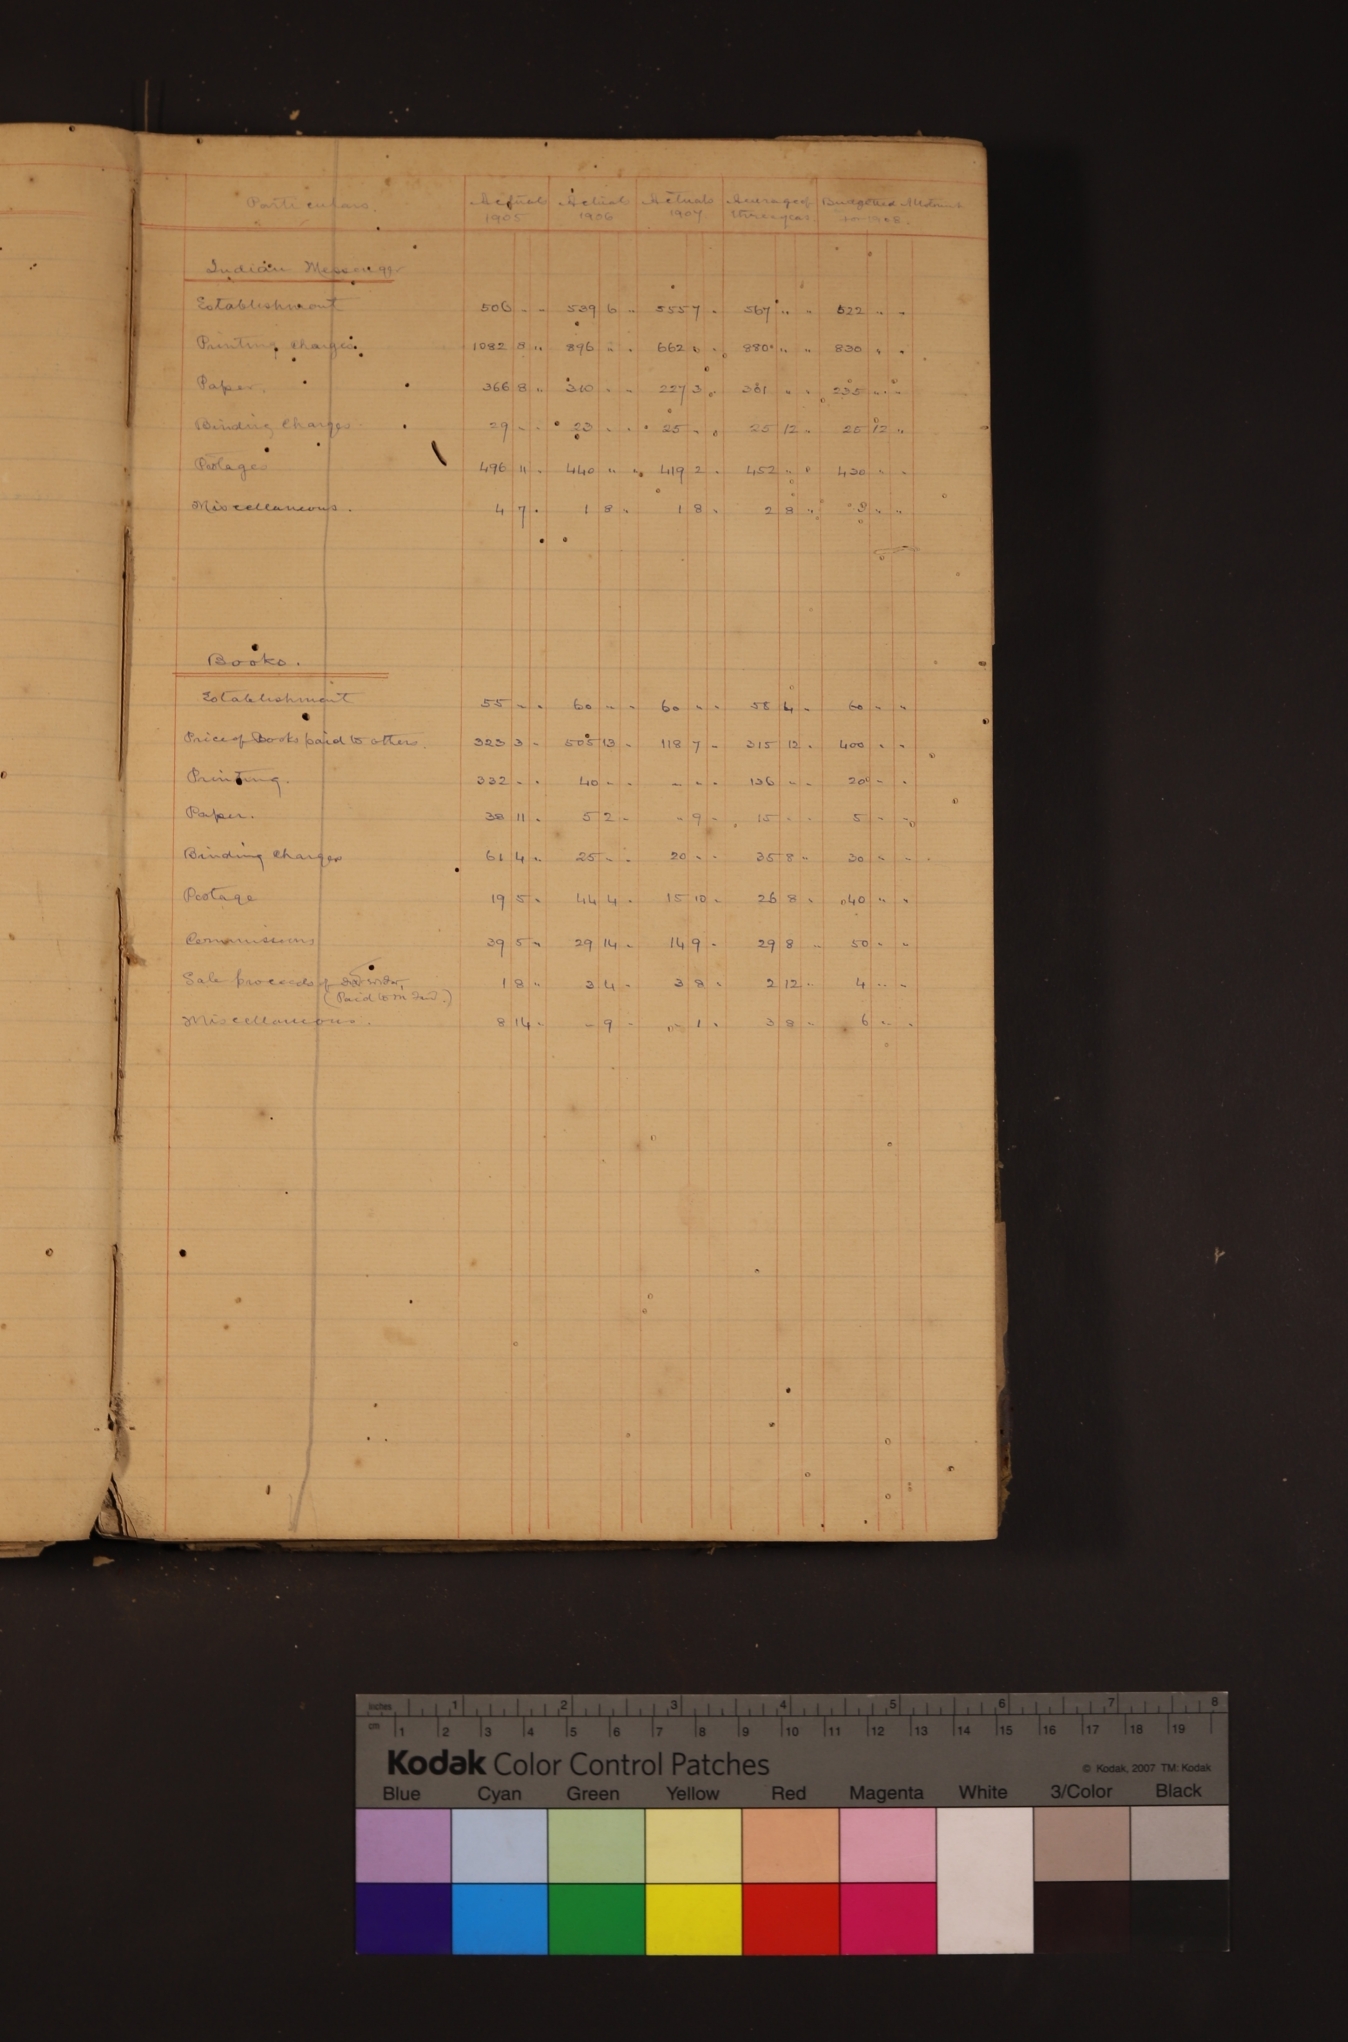 Particulars. Actual 1905 Actual 1906 Actuals 1907 Average of three years. Budgetted Allotment for 1908.
Indian Messenger
Establishment 506 - - 539 6 " 555 7 - 567 " " 522 " "
Printing Charges. 1082 8 " 896 " - 662 - - 880 " " 830 " -
Paper. 366 8 " 310 - - 227 3 - 301 " - 235 " "
Binding Charges 29 - - 23 - - 25 - - 25 12 " 25 12 "
Postages 496 11 - 440 " " 419 2 - 452 " " 430 - -
Miscellaneous. 4 7 - 1 8 " 1 8 - 2 8 " 3 " "
Books.
Establishment 55 - - 60 " - 60 " - 58 4 - 60 - "
Price of Books paid to others. 323 3 - 505 13 - 118 7 - 315 12 - 400 - "
Printing. 332 - - 40 - - - - - 136 - - 200 - -
Paper. 38 11 - 5 2 - " 9 - 15 - - 5 - -
Binding Charges 61 4 " 25 - - 20 - - 35 8 - 30 - -
Postage 19 5 - 44 4 - 15 10 - 26 8 - 40 " "
Commissions 39 5 - 29 14 - 14 9 - 29 8 - 50 - "
Sale proceeds of 1 8 " 3 4 - 3 8 - 2 12 - 4 - -
(Paid to
Miscellaneous. 8 14 - - 9 - - 1 - 3 8 - 6 - -
inches 1 2 3 4 5 6 7 8
cm 1 2 3 4 5 6 7 8 9 10 11 12 13 14 15 16 17 18 19
Kodak Color Control Patches © Kodak, 2007 TM: Kodak
Blue Cyan Green Yellow Red Magenta White 3/Color Black